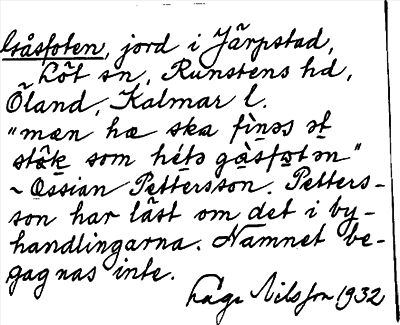 Gåsfoten, jord i Järpstad,
Löt sn, Runstens hd,
Öland, Kalmar l.
"mæn hæ ska fìnəs ət
stǿk som hétə gɑ̀sfotən"
~ Ossian Pettersson. Petters-
son har läst om det i by-
handlingarna. Namnet be-
gagnas inte.
Åke Nilsson 1932